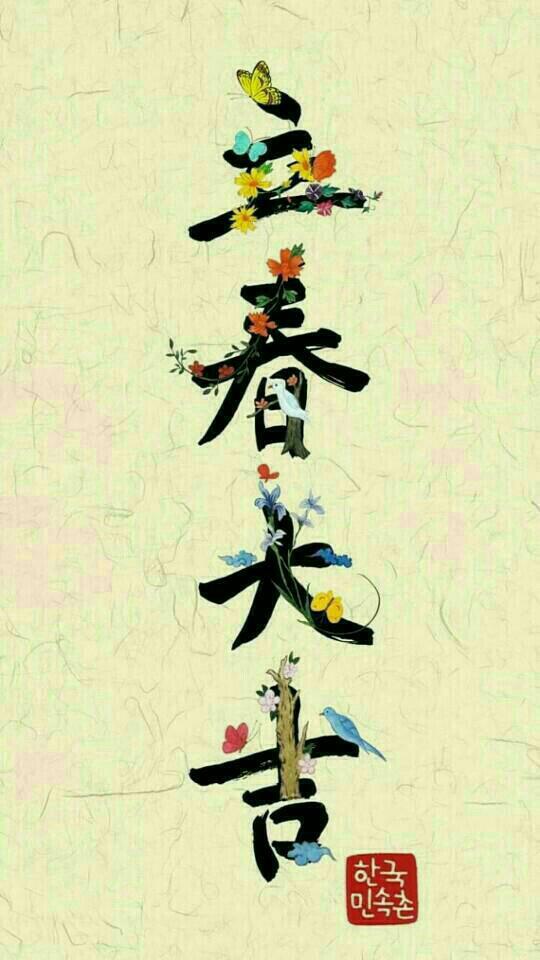 立春大吉
한국
민속촌